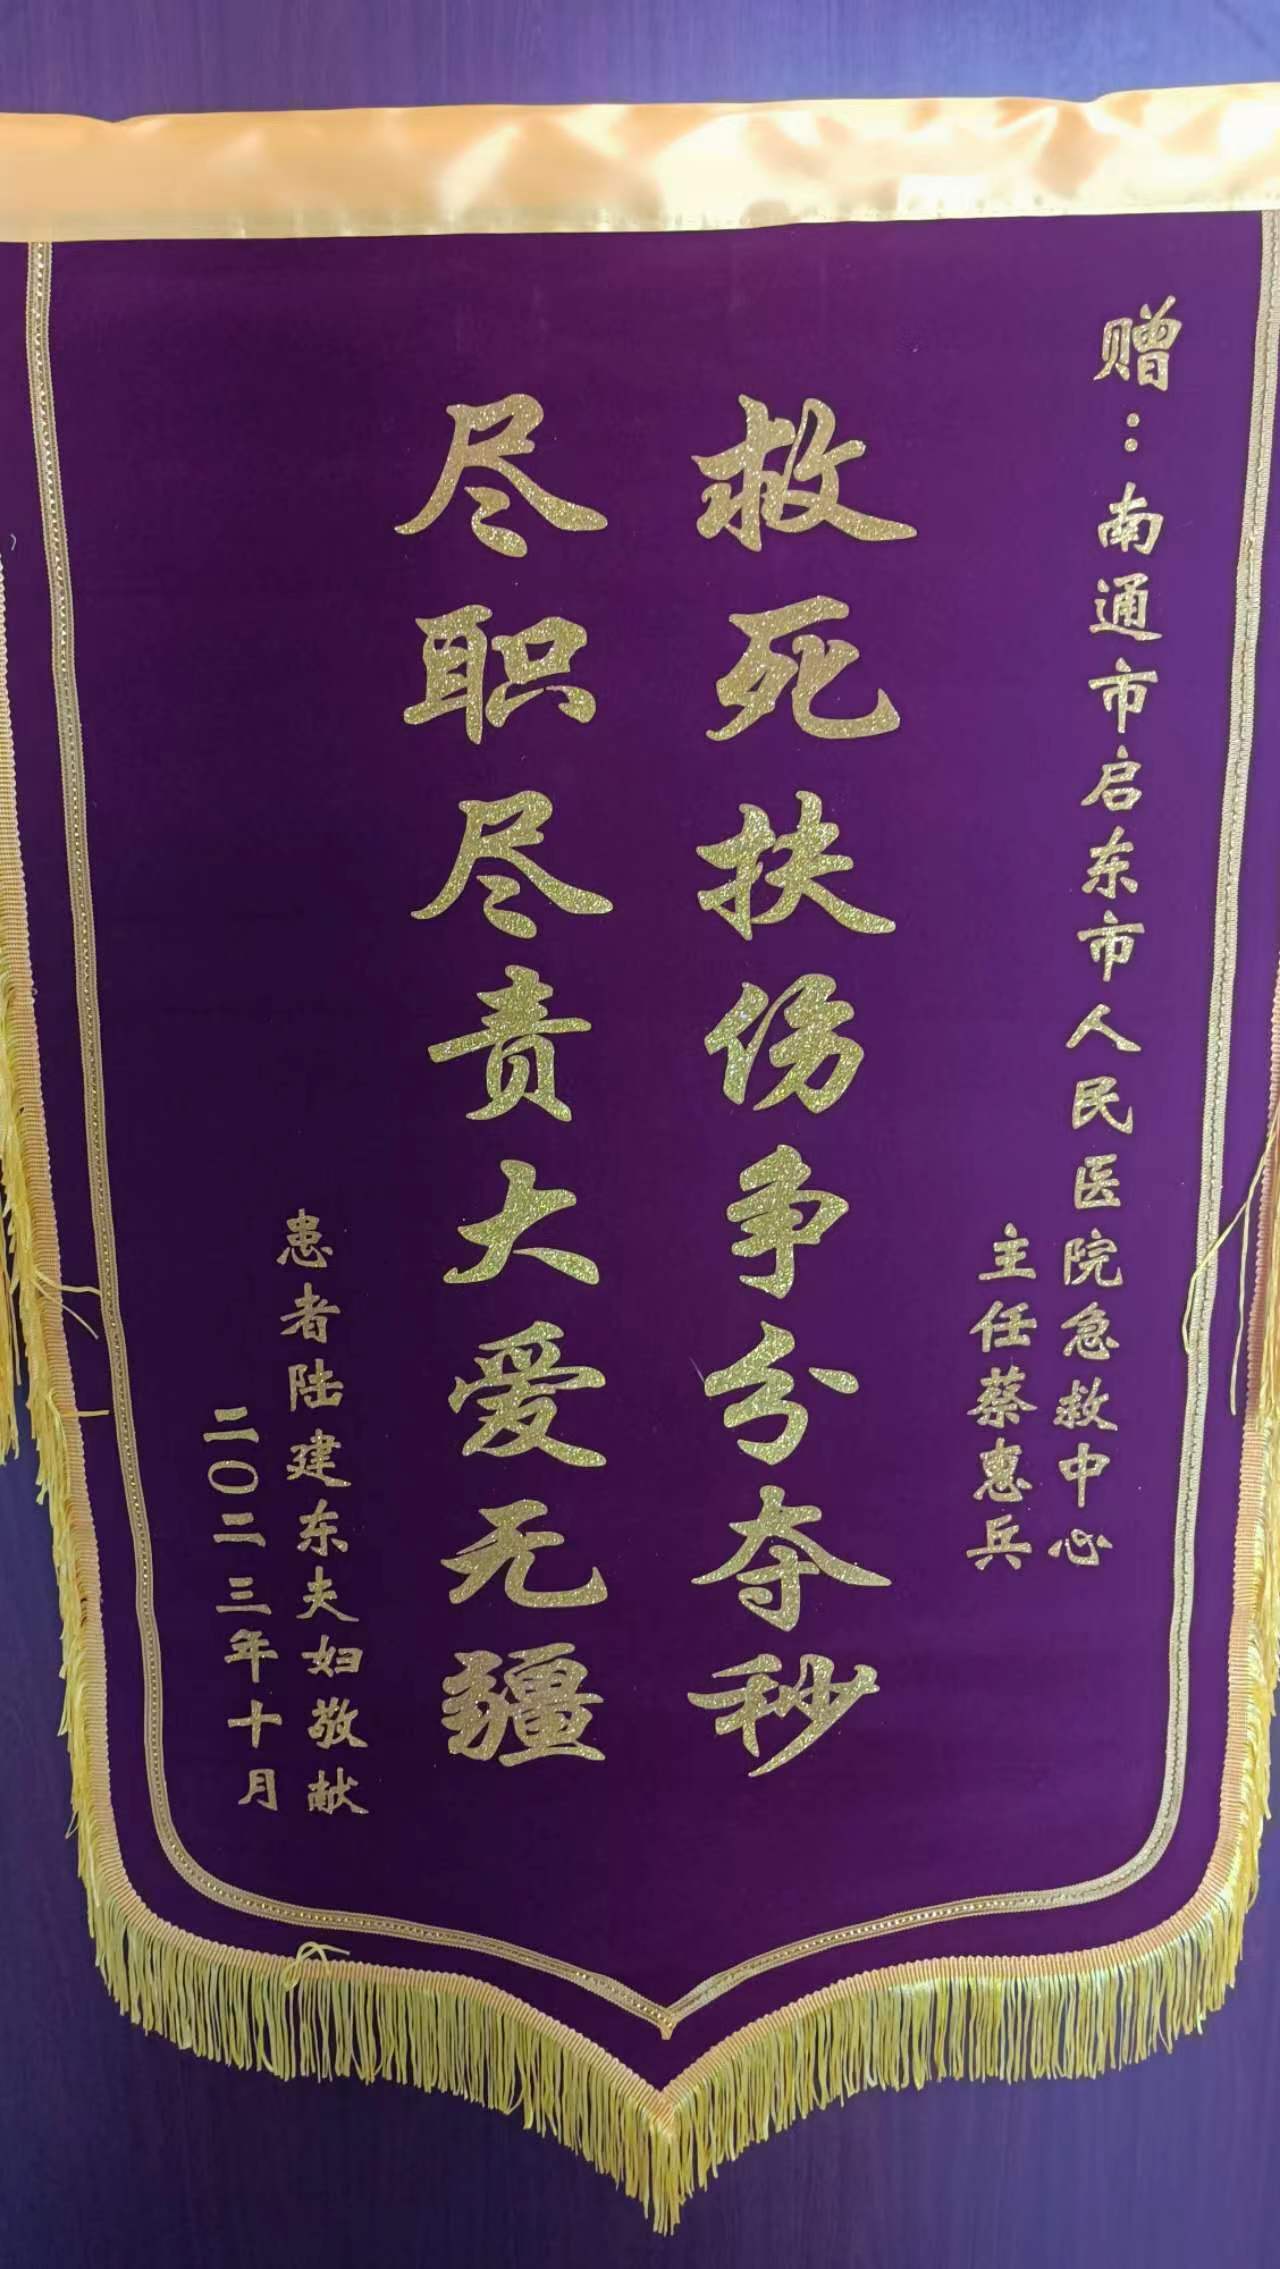 赠：南通市启东市人民医院急救中心
主任蔡惠兵
救死扶伤争分夺秒
尽职尽责大爱无疆
患者陆建东夫妇敬献
二〇二三年十月